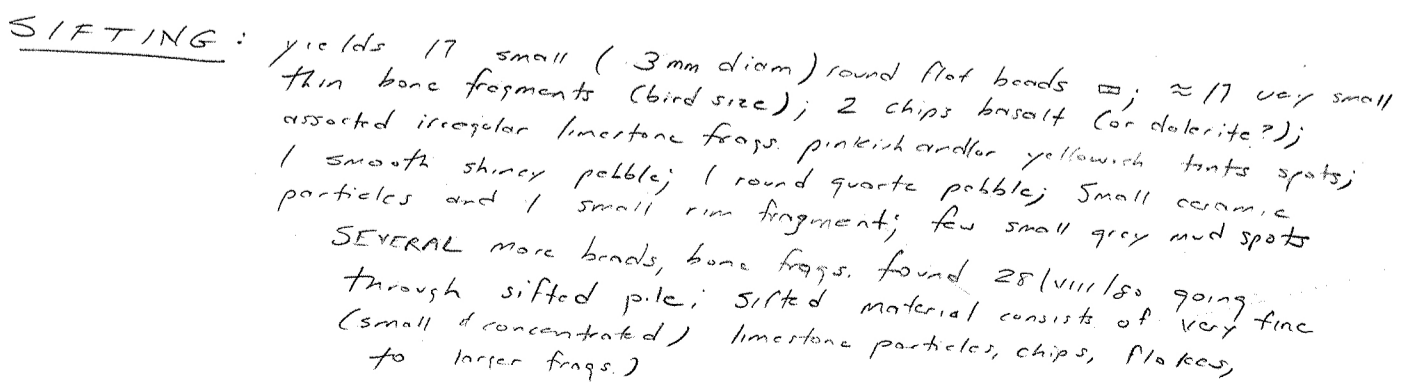 SIFTING: yields 17 small (3mm diam) round flat beads ▭; ≈17 very small
thin bone fragments (bird size); 2 chips basalt (or dolerite?);
assorted irregular limestone frags. pinkish and/or yellowish tints spots;
1 smooth shiney pebble; 1 round quartz pebble; small ceramic
particles and 1 small rim fragment; few small grey mud spots
SEVERAL more beads, bone frags. found 28/VIII/80 going
through sifted pile; sifted material consists of very fine
(small & concentrated) limestone particles, chips, flakes,
to larger frags.)